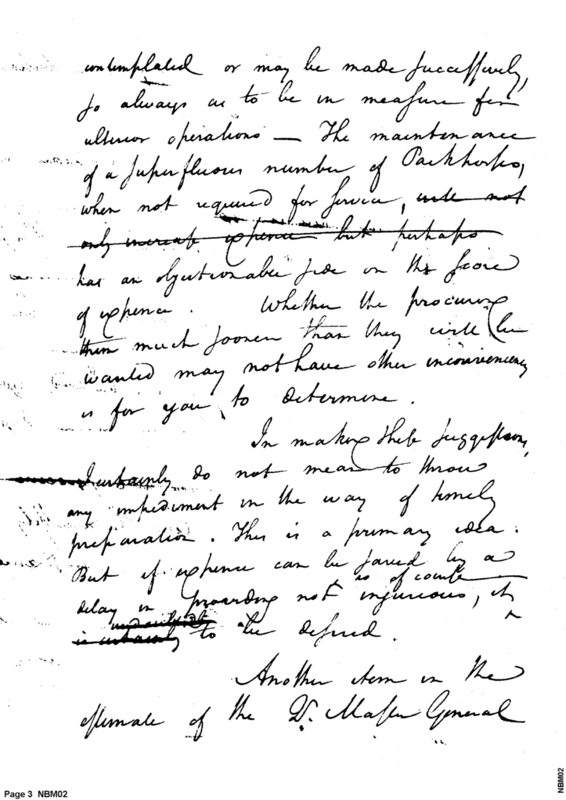 contemplated or may be made successively,
so always as to be in measure for
ulterior operations — The maintenance
of a superfluous number of Packhorses,
when not required for service, will not
only increase expence but perhaps
has an objectionable side on the score
of expence. Whether the procuring
them much sooner than they will be
wanted may not have other inconveniency
is for you to determine.
In making these suggestions,
I certainly do not mean to throw
any impediment in the way of timely
preparation. This is a primary idea.
But if expence can be saved by a
is of course
delay in providing not injurious, it
undoubtedly
is certainly to be desired.
Another item in the
estimate of the Qr. Master General
Page 3 NBM02
NBM02